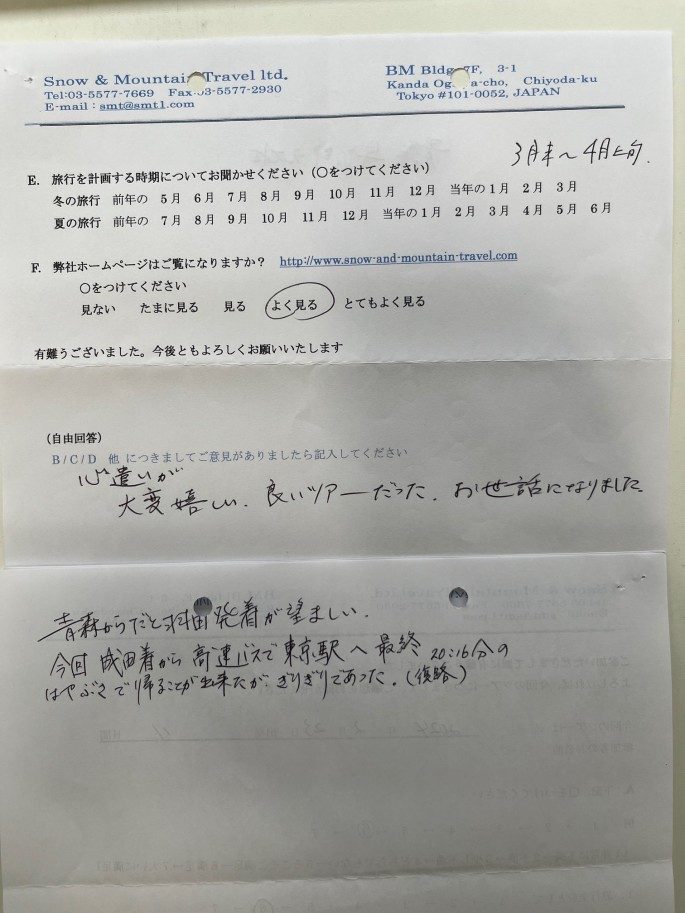 Snow & Mountain Travel ltd.
Tel:03-5577-7669 Fax:03-5577-2930
E-mail : smt@smt1.com
BM Bldg. 7F, 3-1
Kanda Og a-cho, Chiyoda-ku
Tokyo #101-0052, JAPAN
3月末〜4月上旬.
E. 旅行を計画する時期についてお聞かせください（○をつけてください）
冬の旅行 前年の 5月 6月 7月 8月 9月 10月 11月 12月 当年の1月 2月 3月
夏の旅行 前年の 7月 8月 9月 10月 11月 12月 当年の1月 2月 3月 4月 5月 6月
F. 弊社ホームページはご覧になりますか？ http://www.snow-and-mountain-travel.com
○をつけてください
見ない たまに見る 見る よく見る とてもよく見る
有難うございました。今後ともよろしくお願いいたします
（自由回答）
B / C / D 他 につきましてご意見がありましたら記入してください
心遣いが
大変嬉しい、良いツアーだった、お世話になりました
青森からだと羽田発着が望ましい.
今回 成田着から高速バスで東京駅へ最終 20:16分の
はやぶさで帰ることが出来たが ぎりぎりであった。(復路)